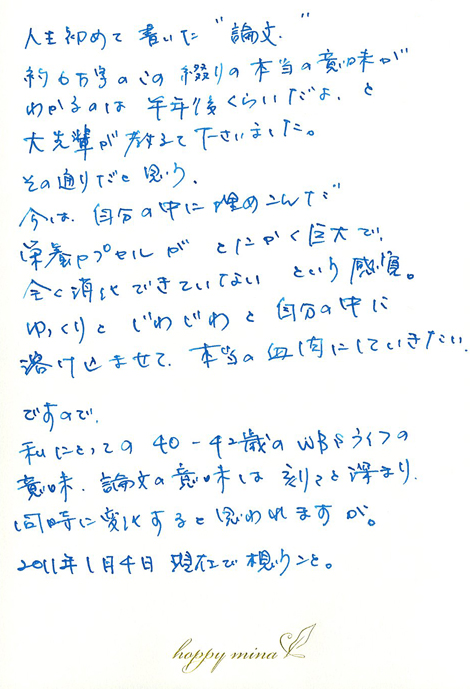 人生初めて書いた"論文"
約6万字のこの綴りの本当の意味が
わかるのは半年後くらいだよ、と
大先輩が教えて下さいました。
その通りだと思う、
今は、自分の中に埋めこんだ
栄養カプセルがとにかく巨大で、
全く消化できていないという感覚。
ゆっくりとじわじわと自分の中に
溶け込ませて、本当の血肉にしていきたい。
ですので、
私にとっての40-42歳のWBSライフの
意味、論文の意味は刻々と深まり、
同時に変化すると思われますが。
2011年1月4日 現在で想うこと。
happy mina